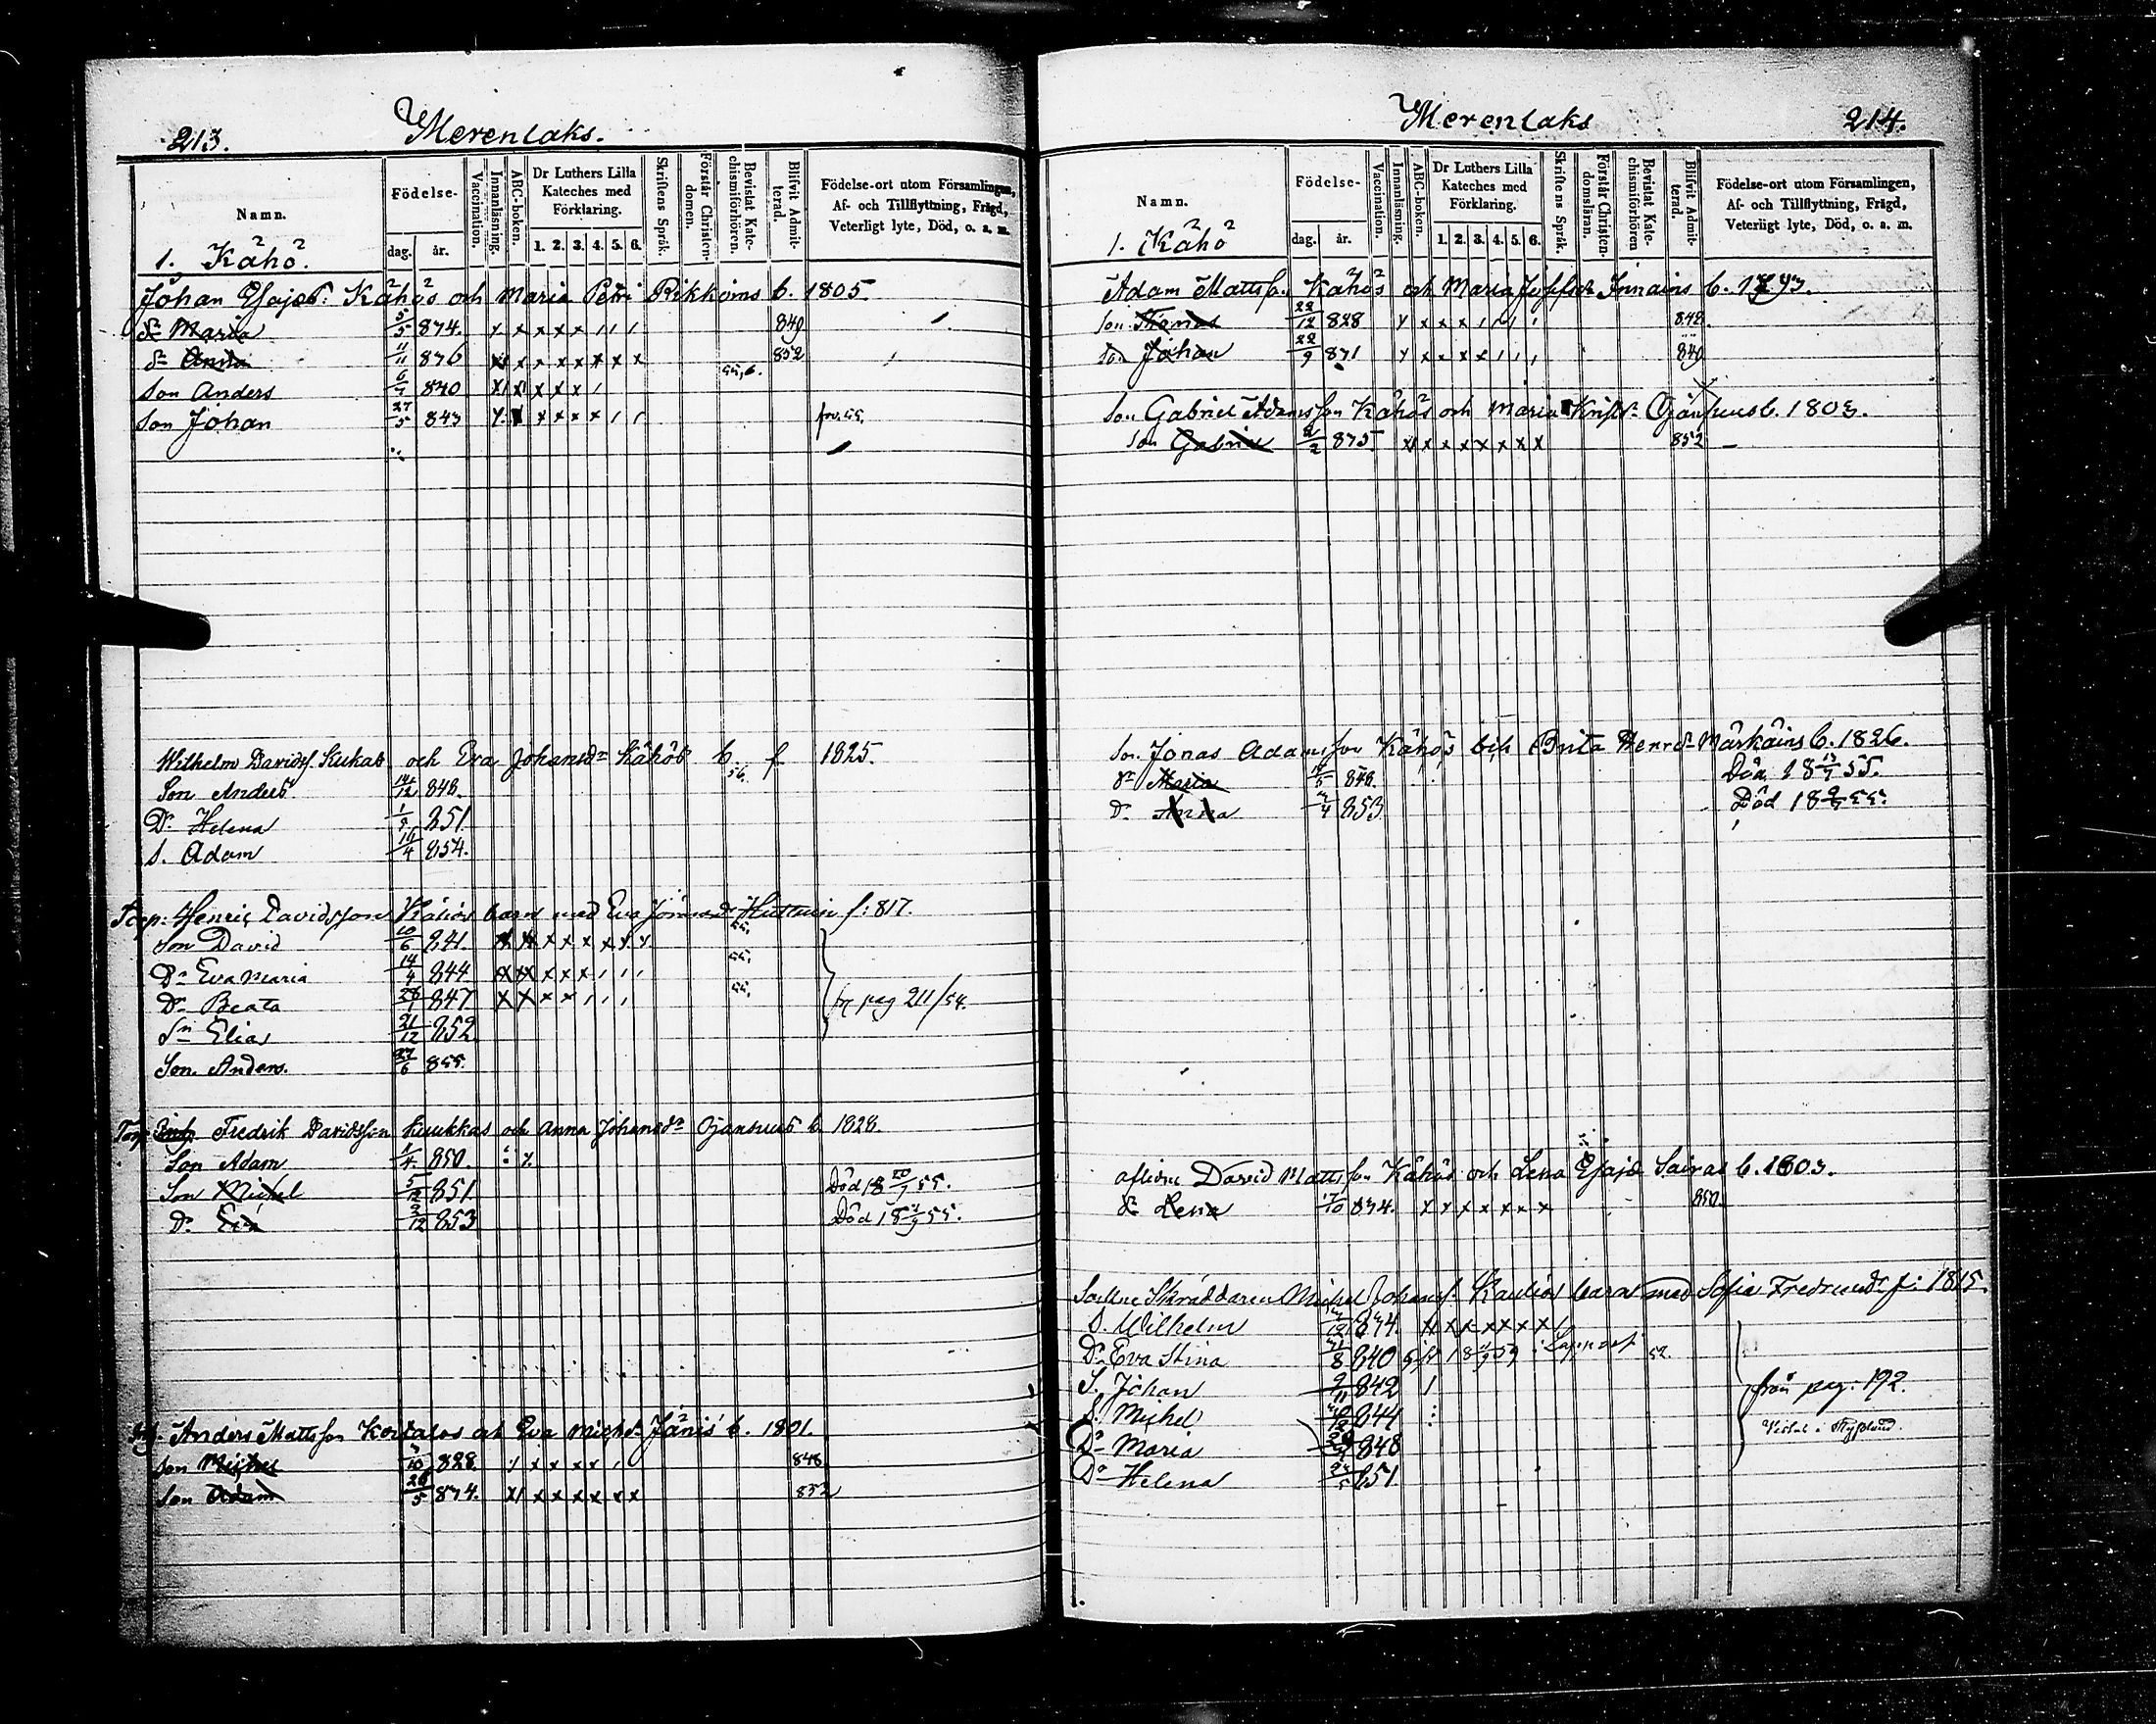 213.
Merenlaks.
Namn.
Födelse-
dag. år.
Vaccination.
Innanläsning.
ABC-boken.
Dr Luthers Lilla Kateches med Förklaring.
1. 2. 3. 4. 5. 6.
Skriftens Språk.
Förstår Christen-domen.
Bevistat Kate-chismiförhören.
Blifvit Admit-terad.
Födelse-ort utom Församlingen,
Af- och Tillflyttning, Frägd,
Veterligt lyte, Död, o. s. m.
1. Kähö.
Johan Esajas: Kähös och Maria Petri Rikkoins b. 1805.
dr Maria 5/5 834. 849
dr Anna 11/11 836 852
Son Anders 6/7 840 55, 6.
Son Johan 27/5 843
Wilhelm Davids. Kukas och Eva Johansdr Kähös b. f 1825.
Son Anders 12 848. 56.
Dr Helena 1/9 851
S. Adam 4 854.
Torp: Henric Davidsson Kähös barn med Eva f: 817.
Son David 10/6 841. 55,
Dr Eva Maria 14/4 844 55,
Dr Beata 28/1 847 55, pag 211/54.
Sn Elias 21/12 852
Son Anders. 27/6 855.
Torp. Fredrik Davidsson Kuukkas och Anna Johansdr Ojansuus b. 1828.
Son Adam 1/4 850.
Son Michel 5/12 851 Död 18 20/7 55.
Dr Eva 3/12 853 Död 18 /9 55.
Anders Mattsson Koitalos och Eva Michdr Jänis b. 1801.
Son Michel 10 828 848
Son Adam 26/5 834. 852
Merenlaks
214.
Namn.
Födelse-
dag. år.
Vaccination.
Innanläsning.
ABC-boken.
Dr Luthers Lilla Kateches med Förklaring.
1. 2. 3. 4. 5. 6.
Skriftens Språk.
Förstår Christen-domsläran.
Bevistat Kate-chismiförhören
Blifvit Admit-terad.
Födelse-ort utom Församlingen,
Af- och Tillflyttning, Frägd,
Veterligt lyte, Död, o. s. m.
1. Kähö
Adam Mattss. Kähös och Maria Josefsdr Innains b. 1793.
Son Thomas 22/12 828 848.
Son Johan 22/9 831 849
Son Gabriel Adamsson Kähös och Maria Kristr Ojansuus b. 1803.
Son Gabriel 2/2 835. 852
Son Jonas Adamsson Kähös och Brita Henrdr Märkäins b. 1826.
dr Maria 5 848. Död 18 /7 55.
Dr Anna 4 853 Död 18 55.
aflidne David Mattsson Kähös och Lena Esajæ Sairas b. 1803.
dr Lena 17/10 834. 850.
Skräddaren Michel Johans. barn med Sofia Fredricsdr f: 1815.
S. Wilhelm 12 834.
Dr Eva Stina 8 840 52.
S. Johan 9/11 842
S. Michel 844
Dr Maria 848
Dr Helena 851.
från pag: 192.